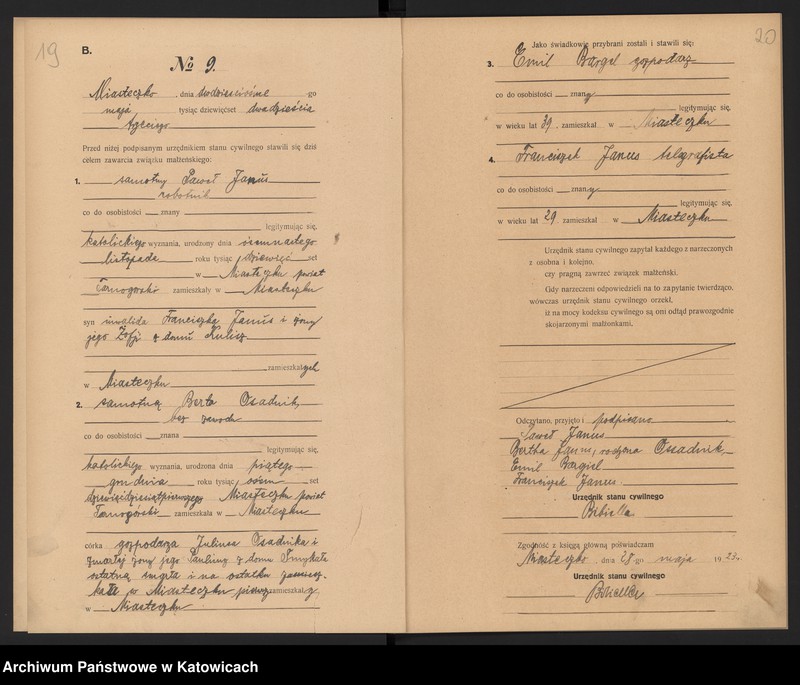 19
B.
№ 9.
Miasteczko, dnia dwudziestego -go
maja tysiąc dziewięćset dwadzieścia
trzeciego
Przed niżej podpisanym urzędnikiem stanu cywilnego stawili się dziś
celem zawarcia związku małżeńskiego:
1. samotny Paweł Janus
robotnik
co do osobistości znany
legitymując się,
katolickiego wyznania, urodzony dnia osiemnastego
listopada roku tysiąc dziewięć set
w Miasteczku powiat
Tarnogórski zamieszkały w Miasteczku
syn inwalida Franciszka Janus i żony
jego Zofji z domu Kulisz
zamieszkałych
w Miasteczku
2. samotna Berta Osadnik,
bez zawodu
co do osobistości znana
legitymując się,
katolickiego wyznania, urodzona dnia piątego
grudnia roku tysiąc ośm set
dziewięćdziesiątpierwszego Miasteczku powiat
Tarnogórski zamieszkała w Miasteczku
córka gospodarza Juliusa Osadnika i
zmarłej żony jego Pauliny z domu
ostatnią i na ostatku
w Miasteczku zamieszkałej
w Miasteczku
20
Jako świadkowie przybrani zostali i stawili się:
3. Emil Bargel gospodarz
co do osobistości znany
legitymując się,
w wieku lat 39, zamieszkał w Miasteczku
4. Franciszek Janus telegrafista
co do osobistości znany
legitymując się,
w wieku lat 29 zamieszkał w Miasteczku
Urzędnik stanu cywilnego zapytał każdego z narzeczonych
z osobna i kolejno.
czy pragną zawrzeć związek małżeński.
Gdy narzeczeni odpowiedzieli na to zapytanie twierdząco,
wówczas urzędnik stanu cywilnego orzekł,
iż na mocy kodeksu cywilnego są oni odtąd prawozgodnie
skojarzonymi małżonkami,
Odczytano, przyjęto i podpisano
Paweł Janus
Bertha Janus, rodzona Ossadnik
Emil Bargiel
Franciszek Janus
Urzędnik stanu cywilnego
Bibiella
Zgodność z księgą główną poświadczam
Miasteczko dnia 28-go maja 1923.
Urzędnik stanu cywilnego
Bibiella
Archiwum Państwowe w Katowicach